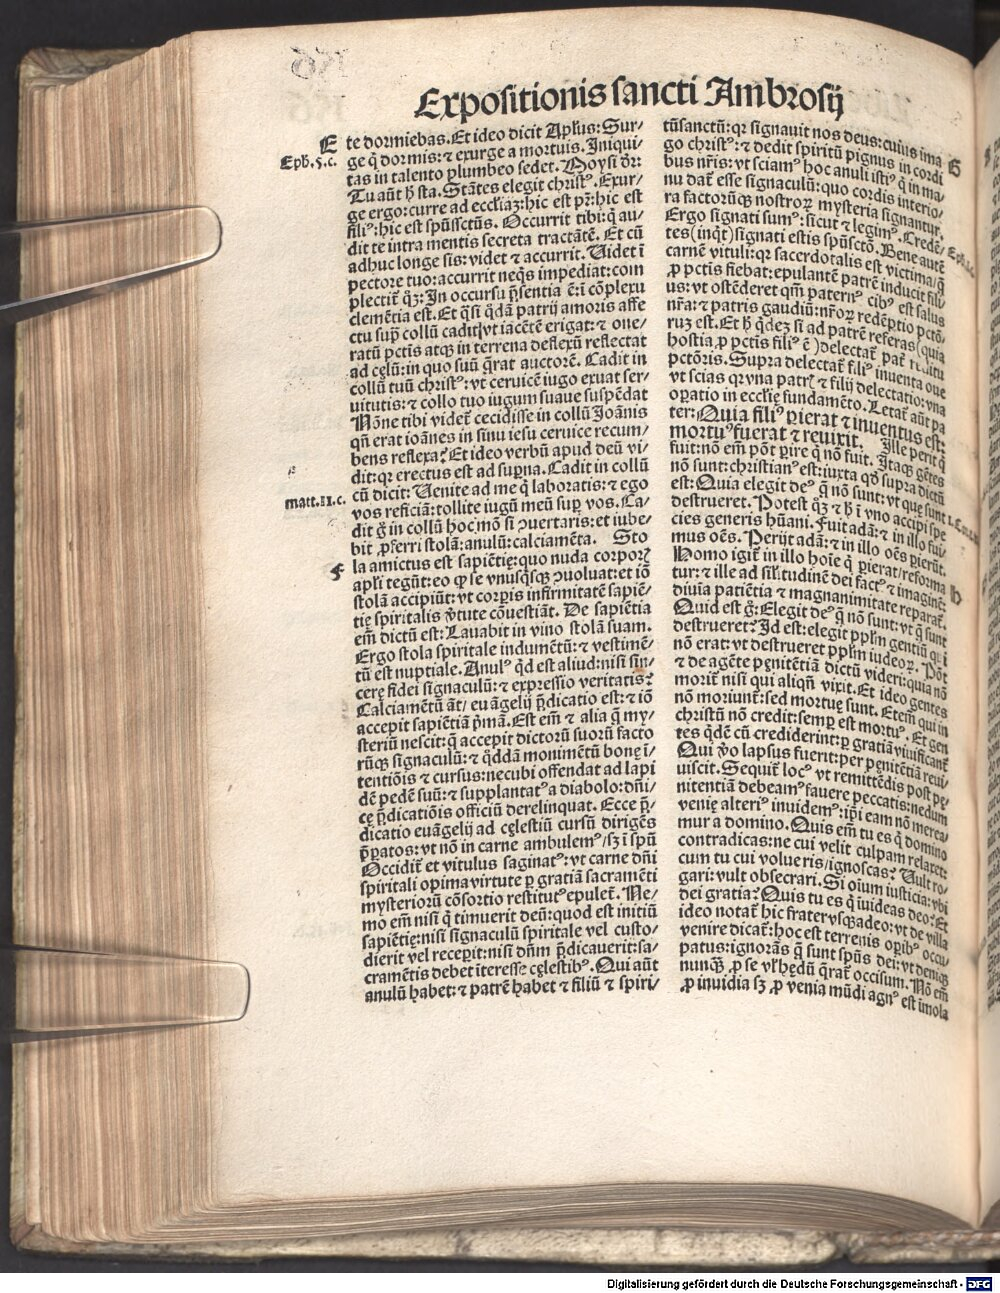 Expositionis sancti Ambrosij
E
Eph.5.c.
te dormiebas. Et ideo dicit Apłus: Sur⸗
ge q̇ dormis: ⁊ exurge a mortuis. Iniqui⸗
tas in talento plumbeo sedet. Moysi dr̄:
Tu aūt h̄ sta. Stātes elegit christꝰ. Exur⸗
ge ergo: curre ad eccłiaꝫ: hic est pr̄: hic est
filiꝰ: hic est spūssctūs. Occurrit tibi: q̇ au⸗
dit te intra mentis secreta tractātē. Et cū
adhuc longe sis: videt ⁊ accurrit. Videt ī
pectore tuo: accurrit neq̇s impediat: com
plectit̄ qꝫ: In occursu p̄sentia ē: ī cōplexu
clemētia est. Et q̇si q̇dā patrij amoris affe
ctu sup̄ collū cadit: vt iacētē erigat: ⁊ one⸗
ratū pctis atqꝫ in terrena deflexū reflectat
ad cęlū: in quo suū q̄rat auctorē. Cadit in
collū tuū christꝰ: vt ceruicē iugo exuat ser⸗
uitutis: ⁊ collo tuo iugum suaue suspēdat
Nōne tibi videt̄ cecidisse in collū Ioānis
qn̄ erat ioānes in sinu iesu ceruice recum⸗
bens reflexa? Et ideo verbū apud deū vi⸗
dit: qꝛ erectus est ad supna. Cadit in collū
matt.11.c.
cū dicit: Uenite ad me q̇ laboratis: ⁊ ego
vos reficiā: tollite iugū meū sup̄ vos. Ca⸗
dit ḡ in collū hoc mō si ꝯuertaris: et iube⸗
bit ꝓferri stolā: anulū: calciamēta. Sto
F
la amictus est sapiētię: quo nuda corporꝭ
apłi tegūt: eo ꝙ se vnusq̇sqꝫ ꝯuoluat: et iō
stolā accipiūt: vt corpis infirmitatē sapiē⸗
tię spiritalis v̄tute cōuestiāt. De sapiētia
em̄ dictū est: Lauabit in vino stolā suam.
Ergo stola spiritale indumētū: ⁊ vestimē⸗
tū est nuptiale. Anulꝰ q̇d est aliud: nisi sin⸗
cerę fidei signaculū: ⁊ expressio veritatis?
Calciamētū āt/ euāgelij p̄dicatio est: ⁊ iō
accepit sapiētiā p̄mā. Est em̄ ⁊ alia q̄ my⸗
steriū nescit: q̄ accepit dictorū suorū facto
rūqꝫ signaculū: ⁊ q̇ddā monimētū bonę ī⸗
tentiōis ⁊ cursus: necubi offendat ad lapi
dē pedē suū: ⁊ supplantatꝰ a diabolo: dn̄i⸗
cę p̄dicatiōis officiū derelinquat. Ecce p̄⸗
dicatio euāgelij ad cęlestiū cursū dirigēs
p̄patos: vt nō in carne ambulemꝰ/ sꝫ ī spū
Occidit̄ et vitulus saginatꝰ: vt carne dn̄i
spiritali opima virtute ꝑ gratiā sacramēti
mysteriorū cōsortio restitutꝰ epulet̄. Ne⸗
mo em̄ nisi q̇ timuerit deū: quod est initiū
sapiētię: nisi signaculū spiritale vel custo⸗
dierit vel receꝑit: nisi dn̄m p̄dicauerit: sa⸗
cramētis debet iteresse cęlestibꝰ. Qui aūt
anulū habet: ⁊ patrē habet ⁊ filiū ⁊ spiri⸗
tūsanctū: qꝛ signauit nos deus: cuius ima
go christꝰ: ⁊ dedit spiritū pignus in cordi
G
bus nr̄is: vt sciamꝰ hoc anuli istiꝰ q̇ in ma⸗
nu dat̄ esse signaculū: quo cordis interio⸗
ra factorūqꝫ nostroꝝ mysteria signantur.
Ergo signati sumꝰ: sicut ⁊ legimꝰ. Credē⸗
tes (inq̇t) signati estis spūsctō. Bene autē
carnē vituli: qꝛ sacerdotalis est victima/ q̄
ꝓ pctis fiebat: epulantē patrē inducit fili
us: vt ostēderet qm̄ paternꝰ cibꝰ est salus
nr̄a: ⁊ patris gaudiū: nr̄oꝝ redēptio pctō⸗
rum est. Et h̄ q̇dez si ad patrē referas (quia
hostia ꝓ pctis filiꝰ ē) delectat̄ pat̄ reditu
pctōris. Supra delectat̄ filiꝰ inuenta oue
vt scias qꝛ vna patrꝭ ⁊ filij delectatio: vna
oꝑatio in eccłię fundamēto. Letat̄ aūt pa
ter: Quia filiꝰ ꝑierat ⁊ inuentus est:
mortuꝰ fuerat ⁊ reuixit. Ille perit q̇
fuit: nō em̄ pōt ꝑire q̇ nō fuit. Itaqꝫ gētes
nō sunt: christianꝰ est: iuxta qd̄ supra dictū
est: Quia elegit deꝰ q̄ nō sunt: vt que sunt
destrueret. Potest qꝫ ⁊ h̄ ī vno accipi spe
cies generis hūani. Fuit adā: ⁊ in illo fui⸗
mus oēs. Perijt adā: ⁊ in illo oēs ꝑierūt.
Homo igit̄ in illo hoīe q̇ ꝑierat/ reforma
H
tur: ⁊ ille ad sił̄itudinē dei factꝰ ⁊ imaginē:
diuīa patiētia ⁊ magnanimitate reparat̄.
Quid est ḡ: Elegit deꝰ q̄ nō sunt: vt q̄ sunt
destrueret? Id est: elegit ppłm gentiū qui
nō erat: vt destrueret ppłm iudeoꝝ. Pōt
⁊ de agēte pęnitētiā dictū videri: quia nō
morit̄ nisi qui aliqn̄ vixit. Et ideo gentes
nō moriunt̄: sed mortuę sunt. Etem̄ qui in
christū nō credit: semp̄ est mortuꝰ. Et gen
tes q̇dē cū crediderint: ꝑ gratiā viuificant̄
Qui v̄o lapsus fuerit: per pęnitētiā reui⸗
uiscit. Sequit̄ locꝰ vt remittēdis post pę⸗
nitentiā debeamꝰ fauere peccatis: nedum
venię alteriꝰ inuidemꝰ: ip̄i eam nō merea⸗
mur a domino. Quis em̄ tu es q̇ domino
contradicas: ne cui velit culpam relaxet:
cum tu cui volueris/ ignoscas? Uult ro⸗
gari: vult obsecrari. Si oīum iusticia: vbi
dei gratia? Quis tu es q̇ īuideas deo? Et
ideo notat̄ hic frater vsqꝫadeo: vt de villa
venire dicat̄: hoc est terrenis opibꝰ occu
patus: ignorās q̄ sunt spūs dei: vt deniqꝫ
nunqꝫ ꝓ se vł hędū q̄rat̄ occisum. Nō em̄
ꝓ inuidia sꝫ ꝓ venia mūdi agnꝰ est imola
Digitalisierung gefördert durch die Deutsche Forschungsgemeinschaft - DFG